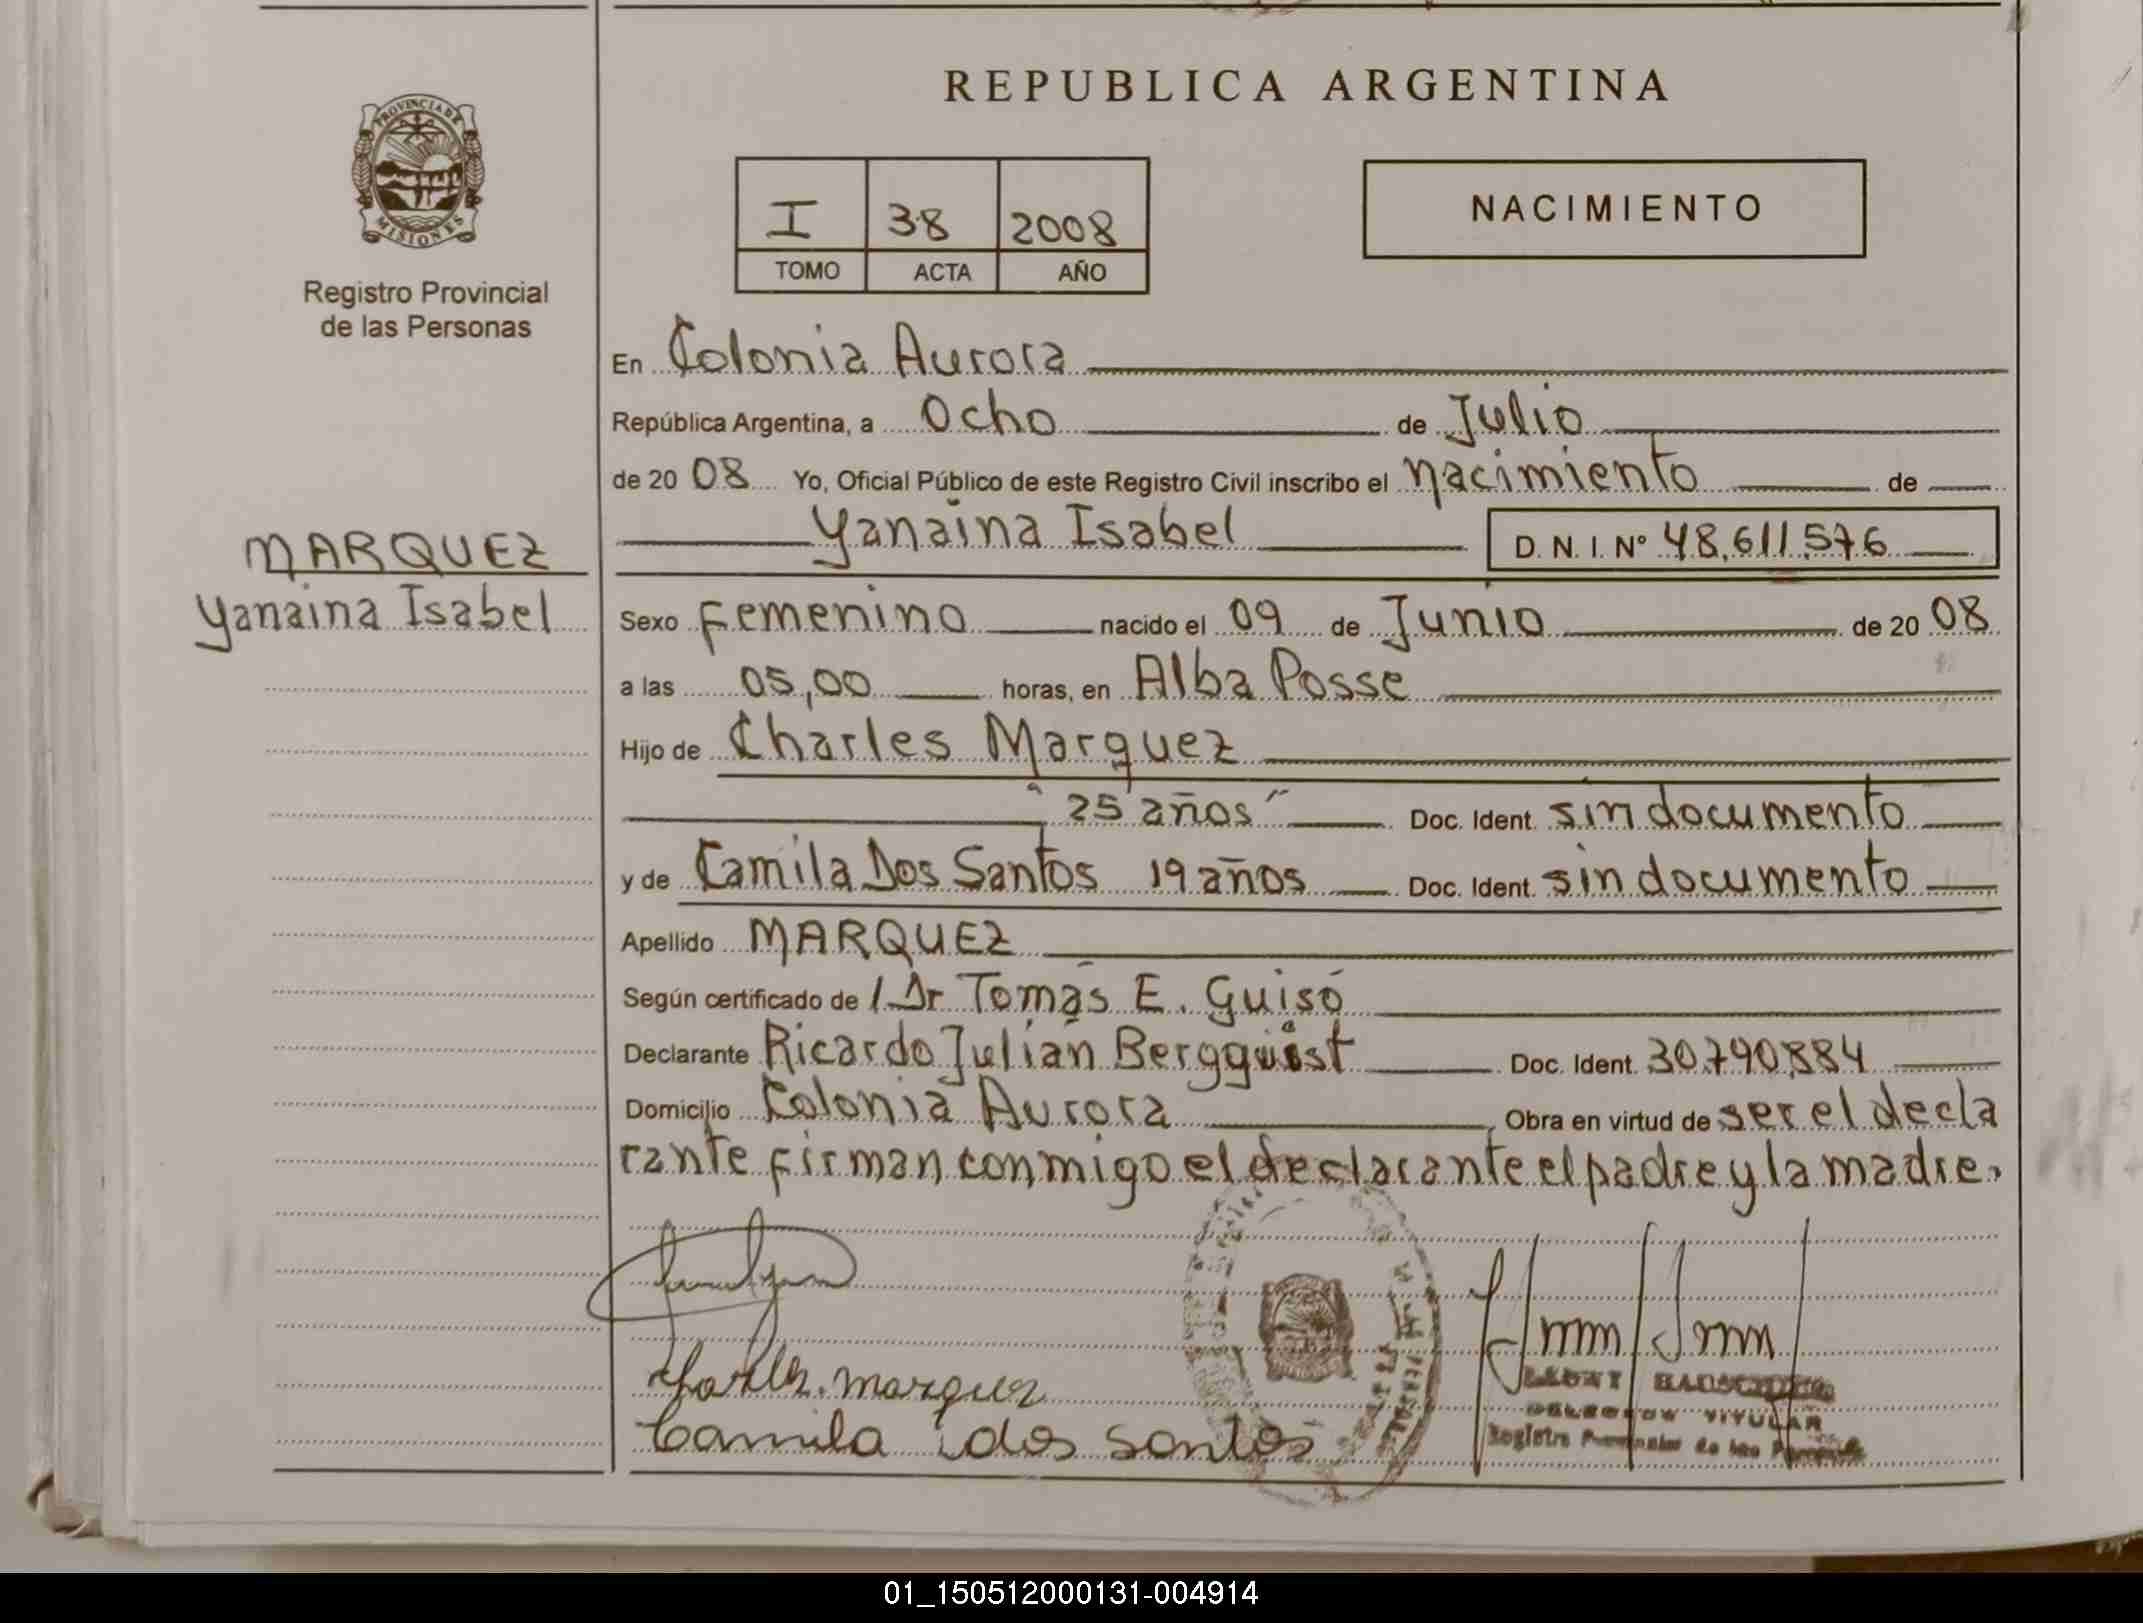 REPUBLICA ARGENTINA
PROVINCIA DE
MISIONES
Registro Provincial
de las Personas
I 38 2008
TOMO ACTA AÑO
NACIMIENTO
En Colonia Aurora
República Argentina, a Ocho de Julio
de 20 08 Yo, Oficial Público de este Registro Civil inscribo el nacimiento de
Yanaina Isabel D. N. I. Nº 48,611,576
MARQUEZ
Yanaina Isabel
Sexo Femenino nacido el 09 de Junio de 20 08
a las 05,00 horas, en Alba Posse
Hijo de Charles Marquez
"25 años" Doc. Ident. sin documento
y de Camila Dos Santos 19 años Doc. Ident. sin documento
Apellido MARQUEZ
Según certificado de / Dr Tomás E. Guisó
Declarante Ricardo Julián Bergquist Doc. Ident. 30.790.884
Domicilio Colonia Aurora Obra en virtud de ser el decla
rante firman conmigo el declarante el padre y la madre.
Charles marquez
Camila dos santos
TITULAR
Registro Provincial de las Personas
01_150512000131-004914